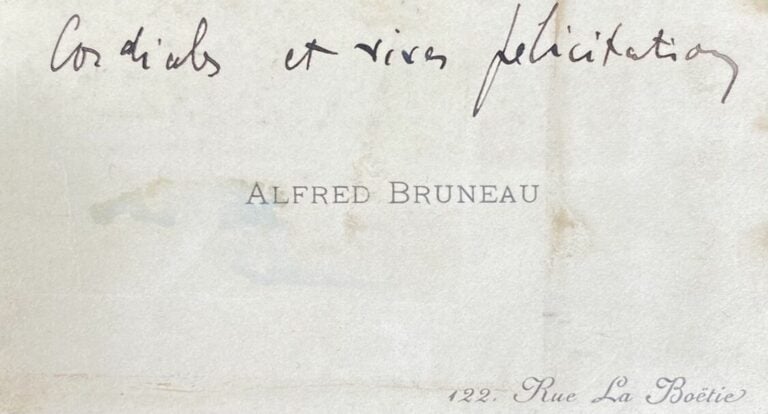 Cordiales et vives félicitations
ALFRED BRUNEAU
122. Rue La Boëtie